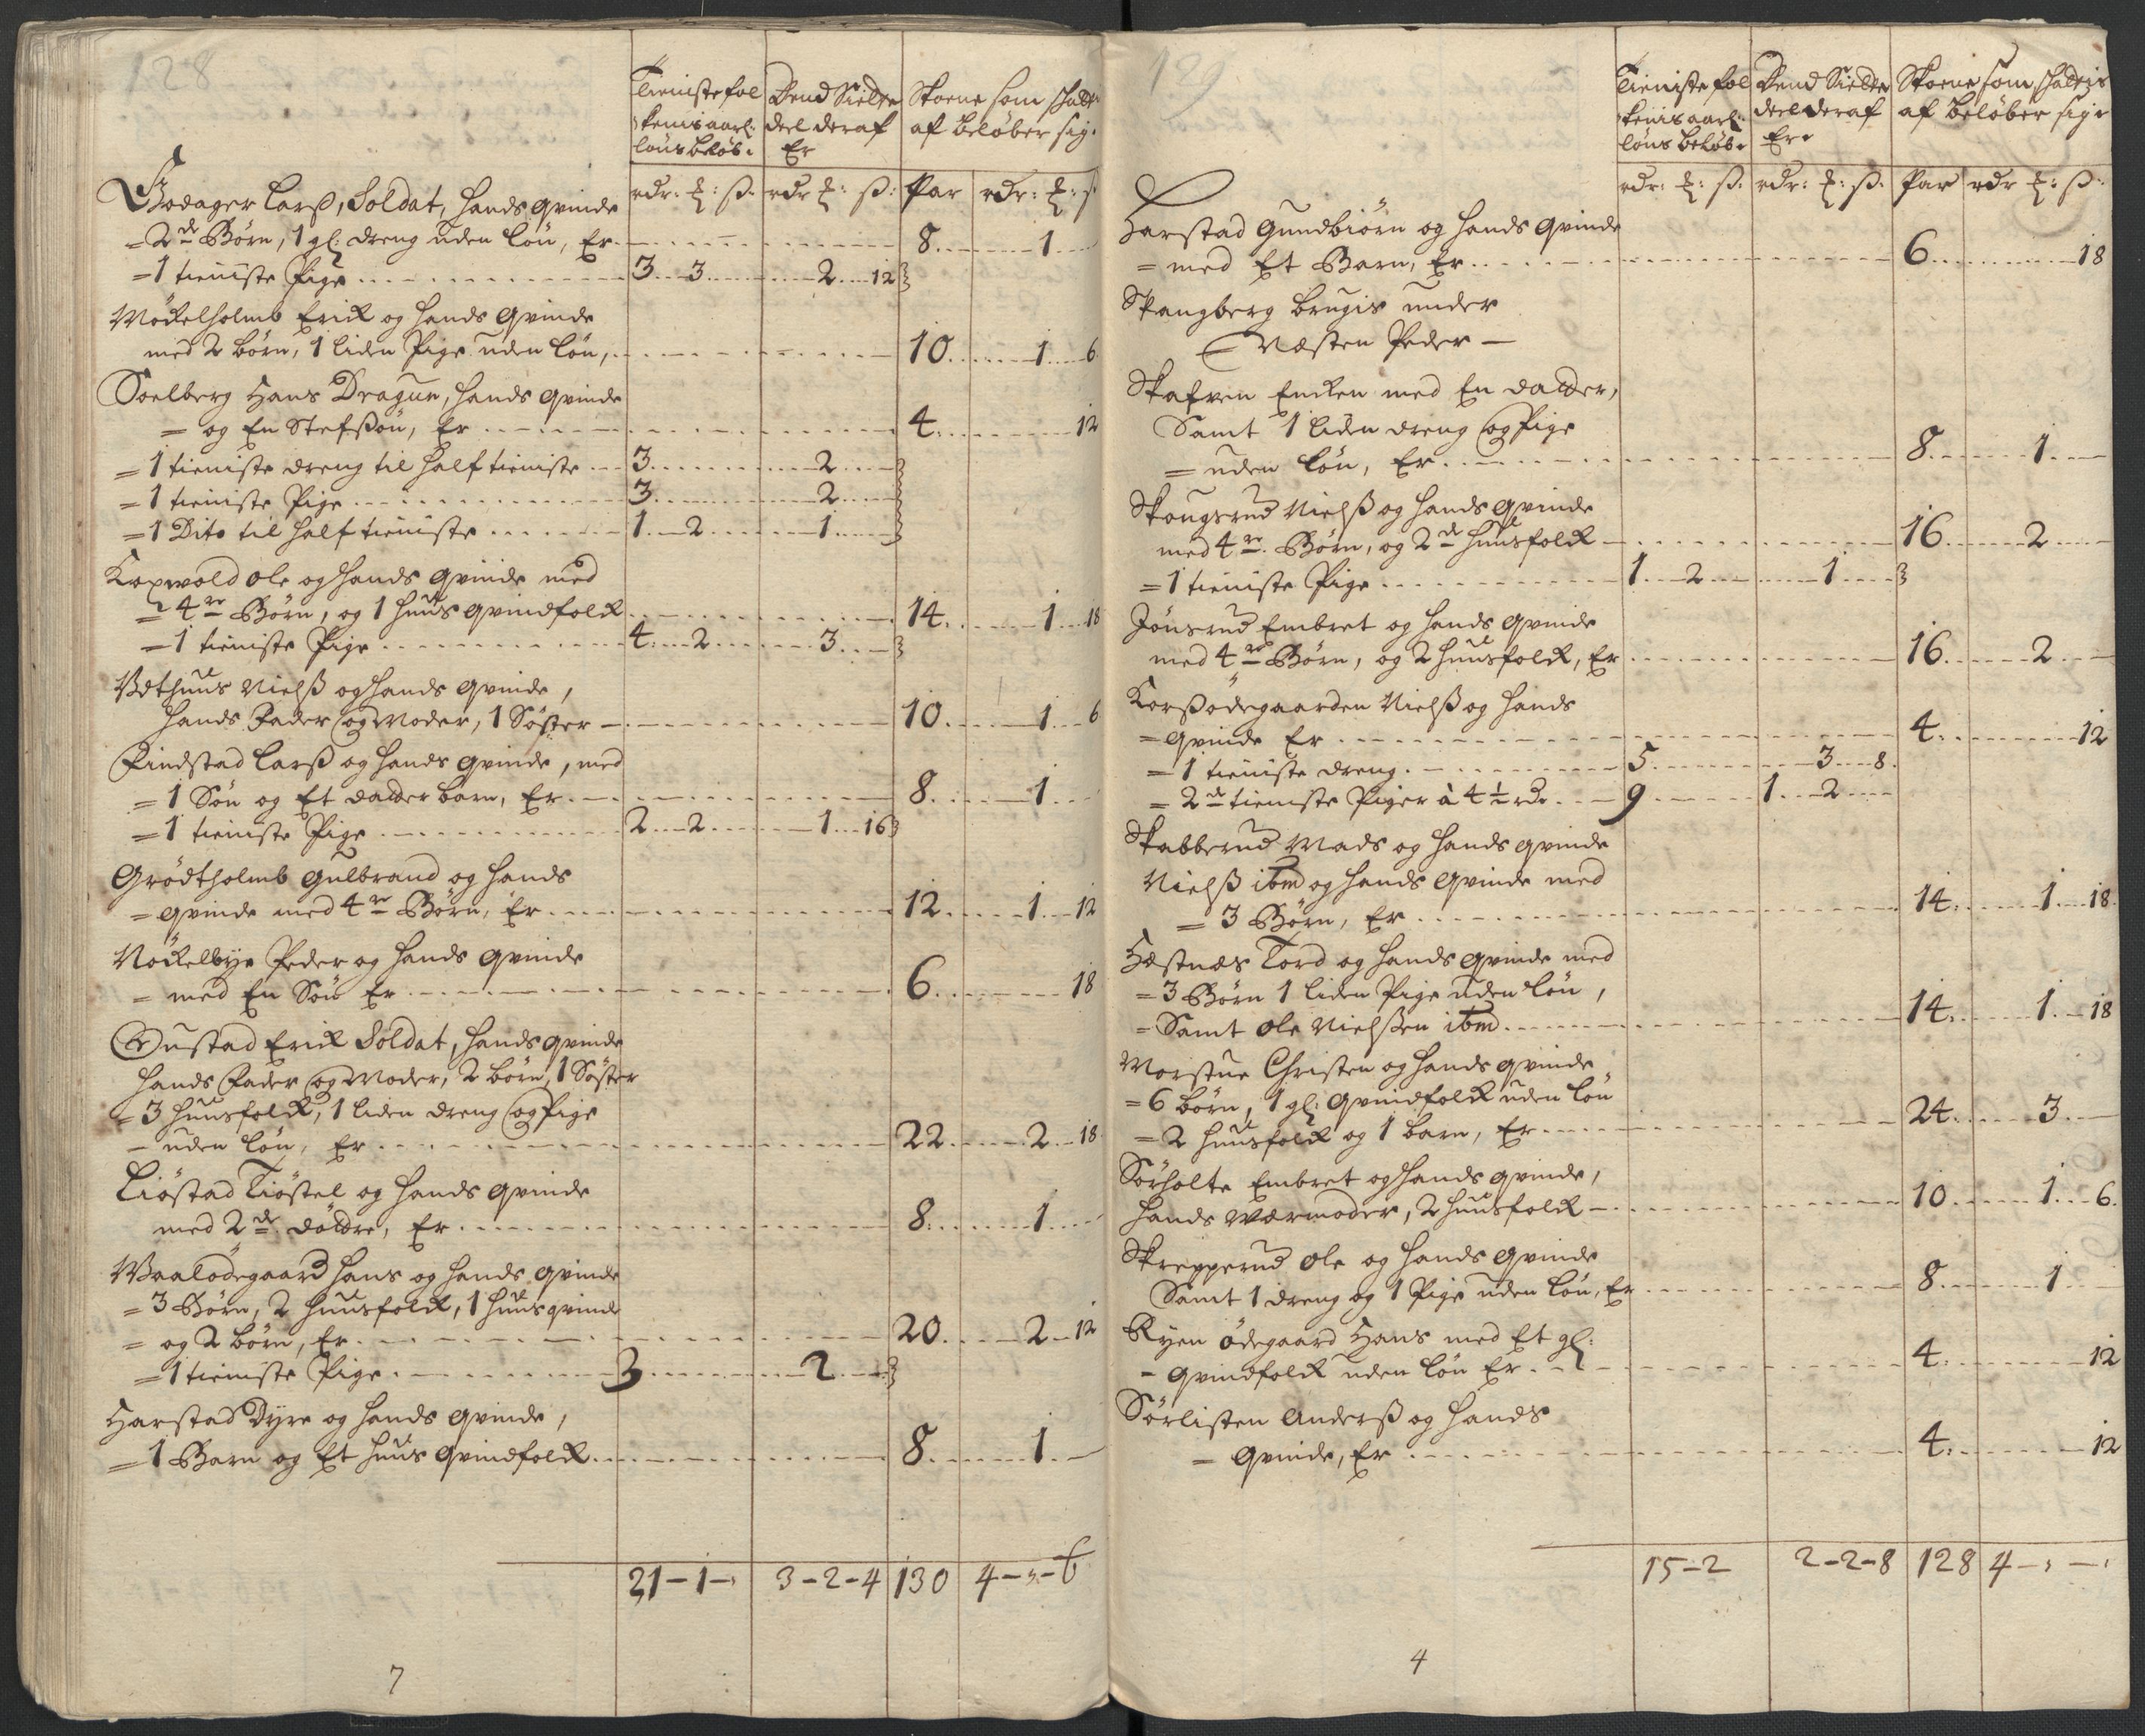 128
Tieniste fol Dend Siette Skoene som skatt
kenis aarl: deel deraf af beløber sig.
løns beløb. Er
rdr: ₰: ß. rdr ₰: ß: Par rdr: ₰: ß
Godager Larß, Soldat, hands qvinde
= 2de Børn, 1 gl: dreng uden løn, Er 8 1
= 1 tieniste Pige 3 3 2 12
Mökelholmb Erick og hands qvinde
med 2 børn, 1 liden Pige uden løn, 10 1 6
Soelberg Hans Dragun, hands qvinde
= og En Stefsön, Er 4 12
= 1 tieniste dreng til half tieniste 3 2
= 1 tieniste Pige 3 2
= 1 Dito til half tieniste 1 2 1
Kopwold Ole og hands qvinde med
= 4re Børn, og 1 huus qvindfolck 14 1 18
= 1 tieniste Pige 4 2 3
Vdthuus Nielß og hands qvinde,
hands Fader og Moder, 1 Söster 10 1 6
Findstad Larß og hands qvinde, med
= 1 Sön og Et datter barn, Er 8 1
= 1 tieniste Pige 2 2 1 16
Grödtholmb Gulbrand og hands
= qvinde med 4re Børn, Er 12 1 12
Nökelbye Peder og hands qvinde
= med En Sön Er 6 18
Gustad Erick Soldat, hands qvinde
hands Fader og Moder, 2 börn, 1 Söster
= 3 huusfolck, 1 liden dreng og Pige
= uden løn, Er 22 2 18
Tiöstad Tiöstel og hands qvinde
med 2de döttre, Er 8 1
Waalödegaard hans og hands qvinde
= 3 Børn, 2 huusfolck, 1 huusqvinde
= og 2 børn, Er 20 2 12
= 1 tieniste Pige 3 2
Harstad Dyre og hands qvinde,
= 1 Barn og Et huus qvindfolck 8 1
21-1- 3-2-4 130 4-,-6
7
129
Tieniste fol Dend Siette Skoene som skattis
kenis aarl: deel deraf af beløber sig
løns beløb. Er.
rdr: ₰: ß. rdr: ₰: ß. Par rdr ₰: ß:
Harstad Gundbiörn og hands qvinde
= med Et Barn, Er 6 18
Spangberg brugis under
Næsten Peder
Skafven Encken med En datter,
Samt 1 liden dreng og Pige
= uden løn, Er 8 1
Skougsrud Nielß og hands qvinde
med 4re Børn, og 2de huusfolck 16 2
= 1 tieniste Pige 1 2 1
Jönsrud Embret og hands qvinde
med 4re Børn, og 2 huusfolck, Er 16 2
Korßödegaarden Nielß og hands
= qvinde Er 4 12
= 1 tieniste dreng 5 3 8
= 2de tieniste Piger à 4½ rdr 9 1 2
Skabberud Mads og hands qvinde
Nielß ibm og hands qvinde med
= 3 Børn, Er 14 1 18
Hestnæs Tord og hands qvinde med
= 3 Børn 1 liden Pige uden løn,
= Samt Ole Nielßen ibm 14 1 18
Morstue Christen og hands qvinde,
= 6 børn, 1 gl: qvindfolck uden løn
= 2 huusfolck og 1 barn, Er 24 3
Sörholte Embret og hands qvinde,
hands Wærmoder, 2 huusfolck 10 1 6
Skrepperud Ole og hands qvinde
Samt 1 dreng og 1 Pige uden løn, Er 8 1
Ryen ödegaard Hans med Et gl:
= qvindfolck uden løn Er 4 12
Sörlisten Anderß og hands
= qvinde, Er 4 12
15-2 2-2-8 128 4-,-,
4